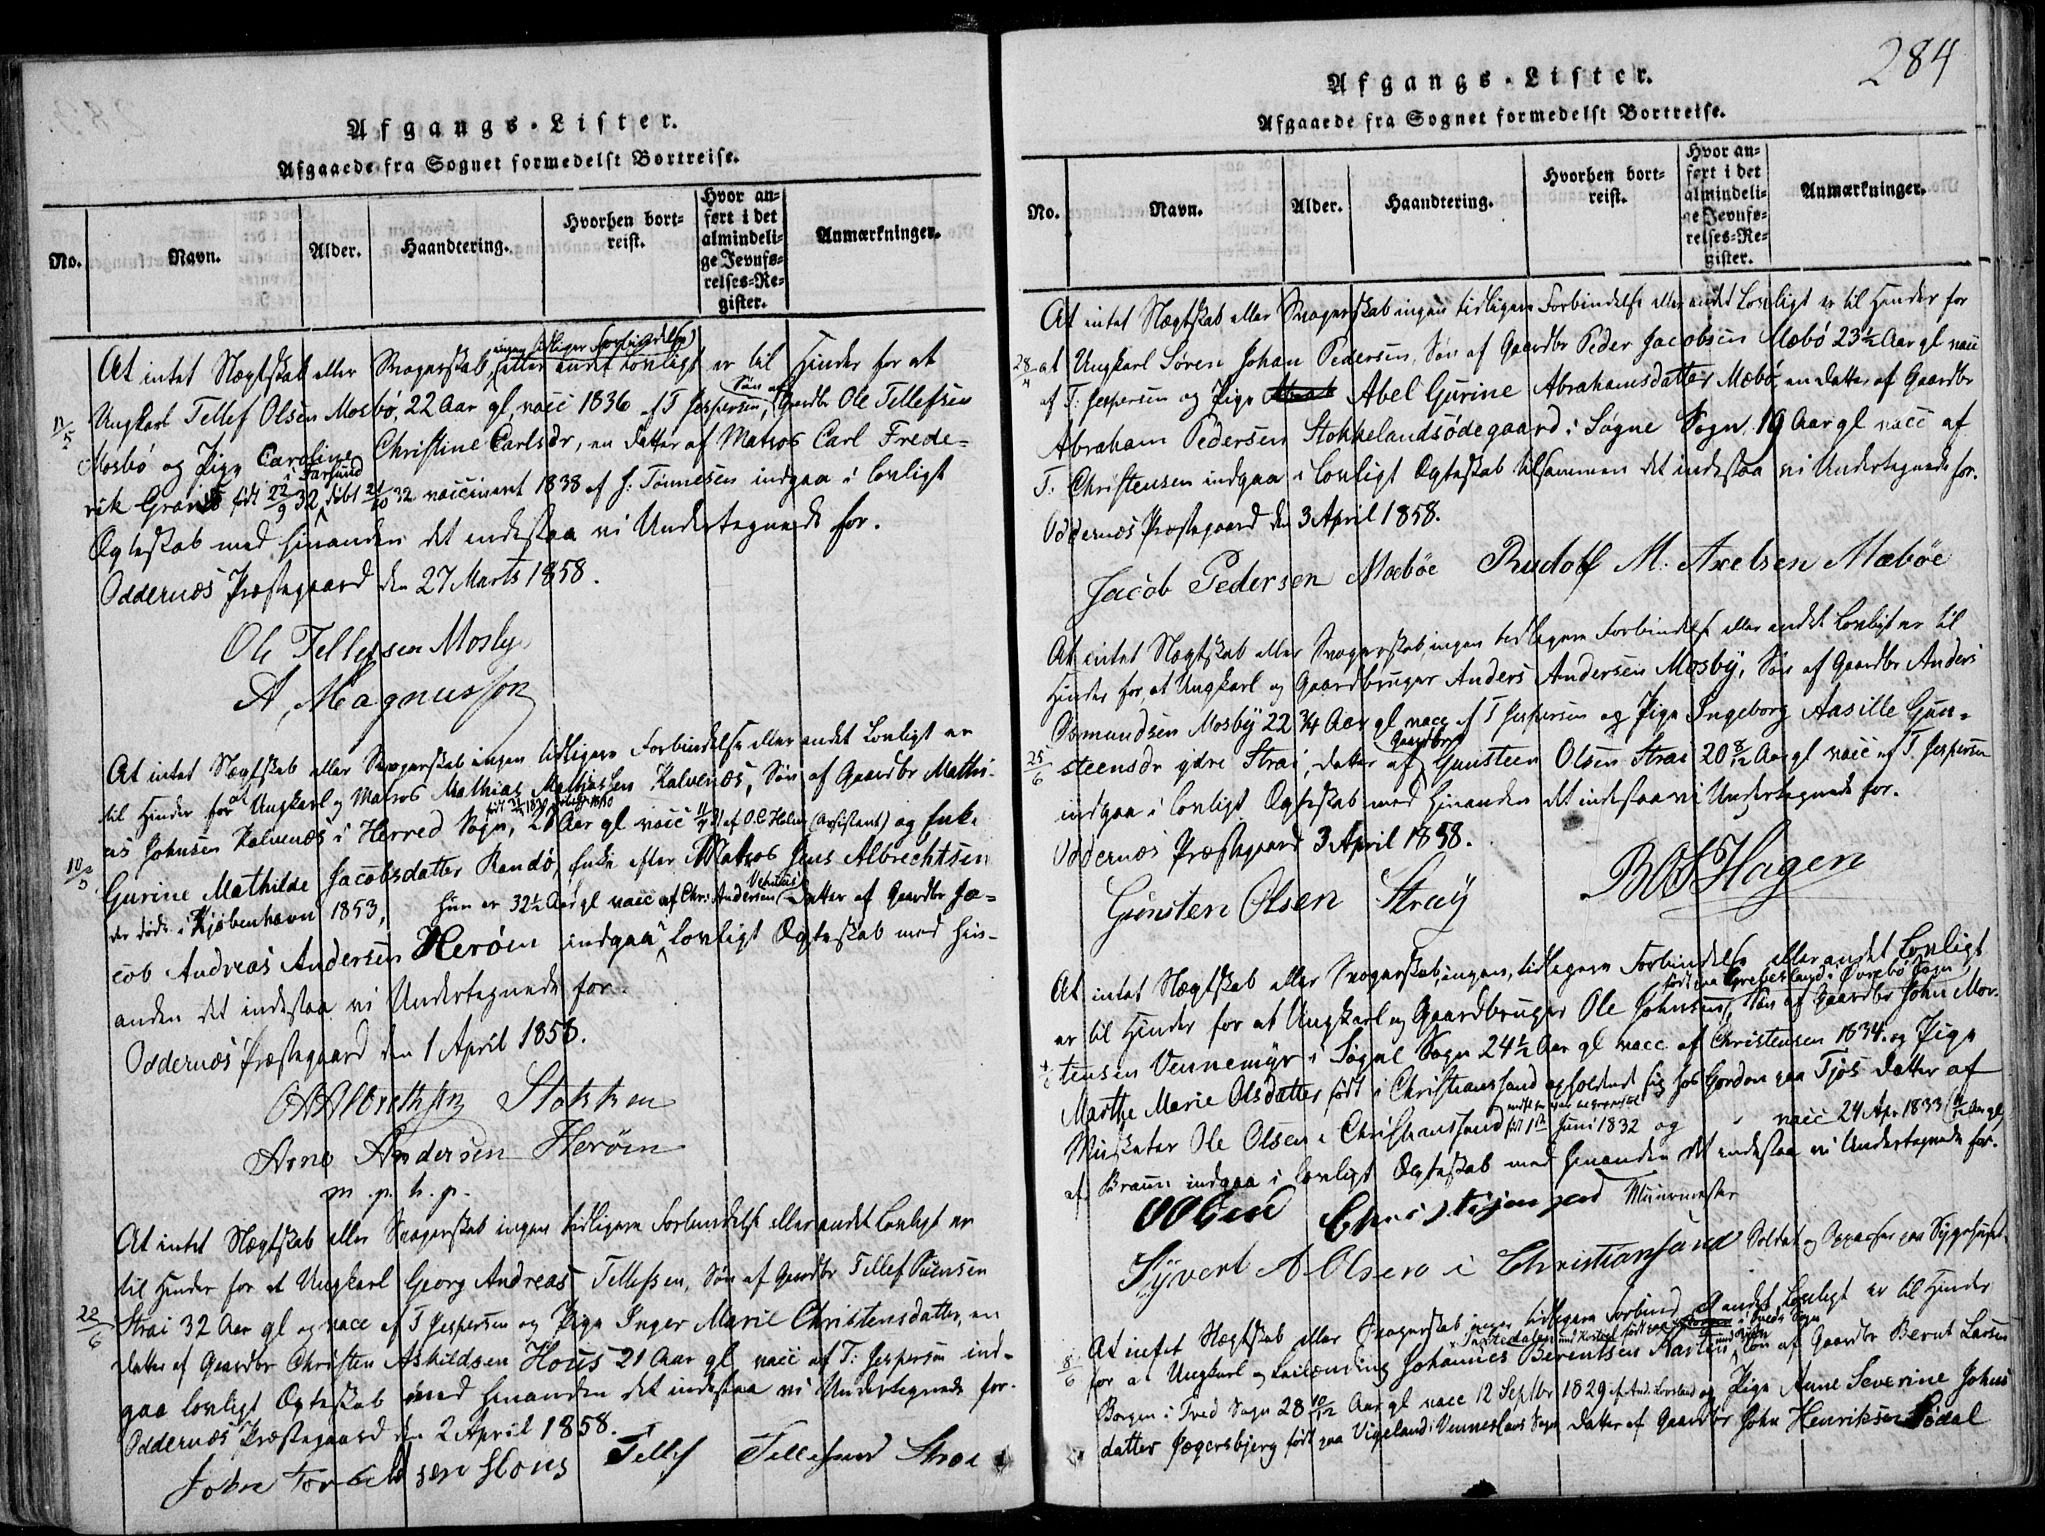 Afgangs-Lister.
Afgaaede fra Sognet formedelst Bortreise.
No.
Navn.
Alder.
Haandtering.
Hvorhen bort-
reist.
Hvor an-
ført i det
almindeli-
ge Jevnfø-
relses-Re-
gister.
Anmærkninger.
At intet Slægtskab eller Svogerskab, ingen tidligere Forbindelse eller andet Lovligt er til Hinder for at
11/5 Ungkarl Tellef Olsen Mosbø, 22 Aar gl, vacc 1836 af T Jespersen, Søn af Gaardbr Ole Tellefsen
Mosbø og Pige Caroline Christine Carlsdr, en Datter af Matros Carl Frede-
rik født 22/9 32 i Farsund, døbt 32 vaccineret 1838 af J. Tønnesen indgaa i lovligt
Ægteskab med hinanden det indestaa vi Undertegnede for.
Oddernæs Præstegaard den 27 Marts 1858.
Ole Tellefsen Mosby
A, Magnusson
At intet Slægtskab eller Svogerskab ingen tidligere Forbindelse eller andet Lovligt er
til Hinder for at Ungkarl og Matros Mathias Mathiassen Kalvenæs, Søn af Gaardbr Mathi-
as Johnsen Kalvenæs i Herred Sogn, Aar gl vacc af O.C Holm (Assistent) og Enke
10/5 Gurine Mathilde Jacobsdatter Randø, Enke efter Matros Jens Albrechtsen
der døde i Kjøbenhavn 1853, hun er 32½ Aar gl vacc af Chr. Andersen Datter af Gaardbr Ja-
cob Andreas Andersen Herøen indgaa i lovligt Ægteskab med hin-
anden det indestaa vi Undertegnede for.
Oddernæs Præstegaard den 1 April 1858.
Albrethsen Stokken
Arne Andersen Herøen
m. p. h. p.
At intet Slægtskab eller Svogerskab ingen tidligere Forbindelse eller andet Lovligt er
til Hinder for at Ungkarl Georg Andreas Tellefsen, Søn af Gaardbr Tellef Suensen
22/6 Strai 32 Aar gl og vacc af T Jespersen og Pige Inger Marie Christensdatter, en
Datter af Gaardbr Christen Askildsen Hous 21 Aar gl, vacc af T. Jespersen ind-
gaa lovligt Ægteskab med hinanden det indestaa vi Undertegnede for.
Oddernæs Præstegaard den 2 April 1858.
John Hous Tellef Tellefsend Strai
284
Afgangs-Lister.
Afgaaede fra Sognet formedelst Bortreise.
No.
Navn.
Alder.
Haandtering.
Hvorhen bort-
reist.
Hvor an-
ført i det
almindeli-
ge Jevnfø-
relses-Re-
gister.
Anmærkninger.
At intet Slægtskab eller Svogerskab ingen tidligere Forbindelse eller andet Lovligt er til Hinder for
28/4 at Ungkarl Søren Johan Pedersen, Søn af Gaardbr Peder Jacobsen Mæbø 23½ Aar gl vacc
af T. Jespersen og Pige Abel Gurine Abrahamsdatter Mæbø, en Datter af Gaardbr
Abraham Pedersen Stokkelandsødegaard i Søgne Sogn, 19 Aar gl vacc af
T. Christensen indgaa i lovligt Ægteskab tilsammen det indestaa vi Undertegnede for.
Oddernæs Præstegaard den 3 April 1858.
Jacob Pedersen Mæbøe Rudolf M. Axelsen Mæbøe
At intet Slægtskab eller Svogerskab, ingen tidligere Forbindelse eller andet Lovligt er til
Hinder for, at Ungkarl og Gaardbruger Anders Andersen Mosby, Søn af Gaardbr Anders
Osmundsen Mosby 22 3/4 Aar gl vacc af T Jespersen og Pige Ingeborg Aasille Gun-
25/6 steensdr ydre Strai, Datter af Gaardbr Gunsteen Olsen Strai 20 8/12 Aar gl vacc af T. Jespersen
indgaa i lovligt Ægteskab med hinanden det indestaa vi Undertegnede for.
Oddernæs Præstegaard 3 April 1858.
Gunsten Olsen Stray BOSHagen
At intet Slægtskab eller Svogerskab, ingen tidligere Forbindelse eller andet Lovligt
er til Hinder for at Ungkarl og Gaardbruger Ole Johnsen, født paa Grebesland i Øvrebø Sogn, Søn af Gaardbr John Mor-
tensen Vennemyr i Søgne Sogn 24½ Aar gl vacc af Christensen 1834. og Pige
Marthe Marie Olsdatter født i Christianssand opholdende sig hos Gordon paa Tjøs Datter af
Musketer Ole Olsen i Christianssand født 1ste Juni 1832 og vacc 24 Apr 1833
af Braun indgaa i lovligt Ægteskab med hinanden det indestaa vi Undertegnede for.
OOlsen Christiansand Muurmester
Syvert A Olsen i Christiansand Soldat og Oppasser paa Sygehuset
At intet Slægtskab eller Svogerskab ingen tidligere Forbind. el andet Lovligt er til Hinder
8/6 for at Ungkarl og Leilænding Johannes Berentsen Søn af Gaardbr Bernt Larsen
Borgen i Tved Sogn 28 10/12 Aar gl vacc 12 Septbr 1829 og Pige Anne Severine Johns
datter Jægersbjerg født paa Vigeland i Venneslas Sogn Datter af Gaardbr John Henriksen Sødal